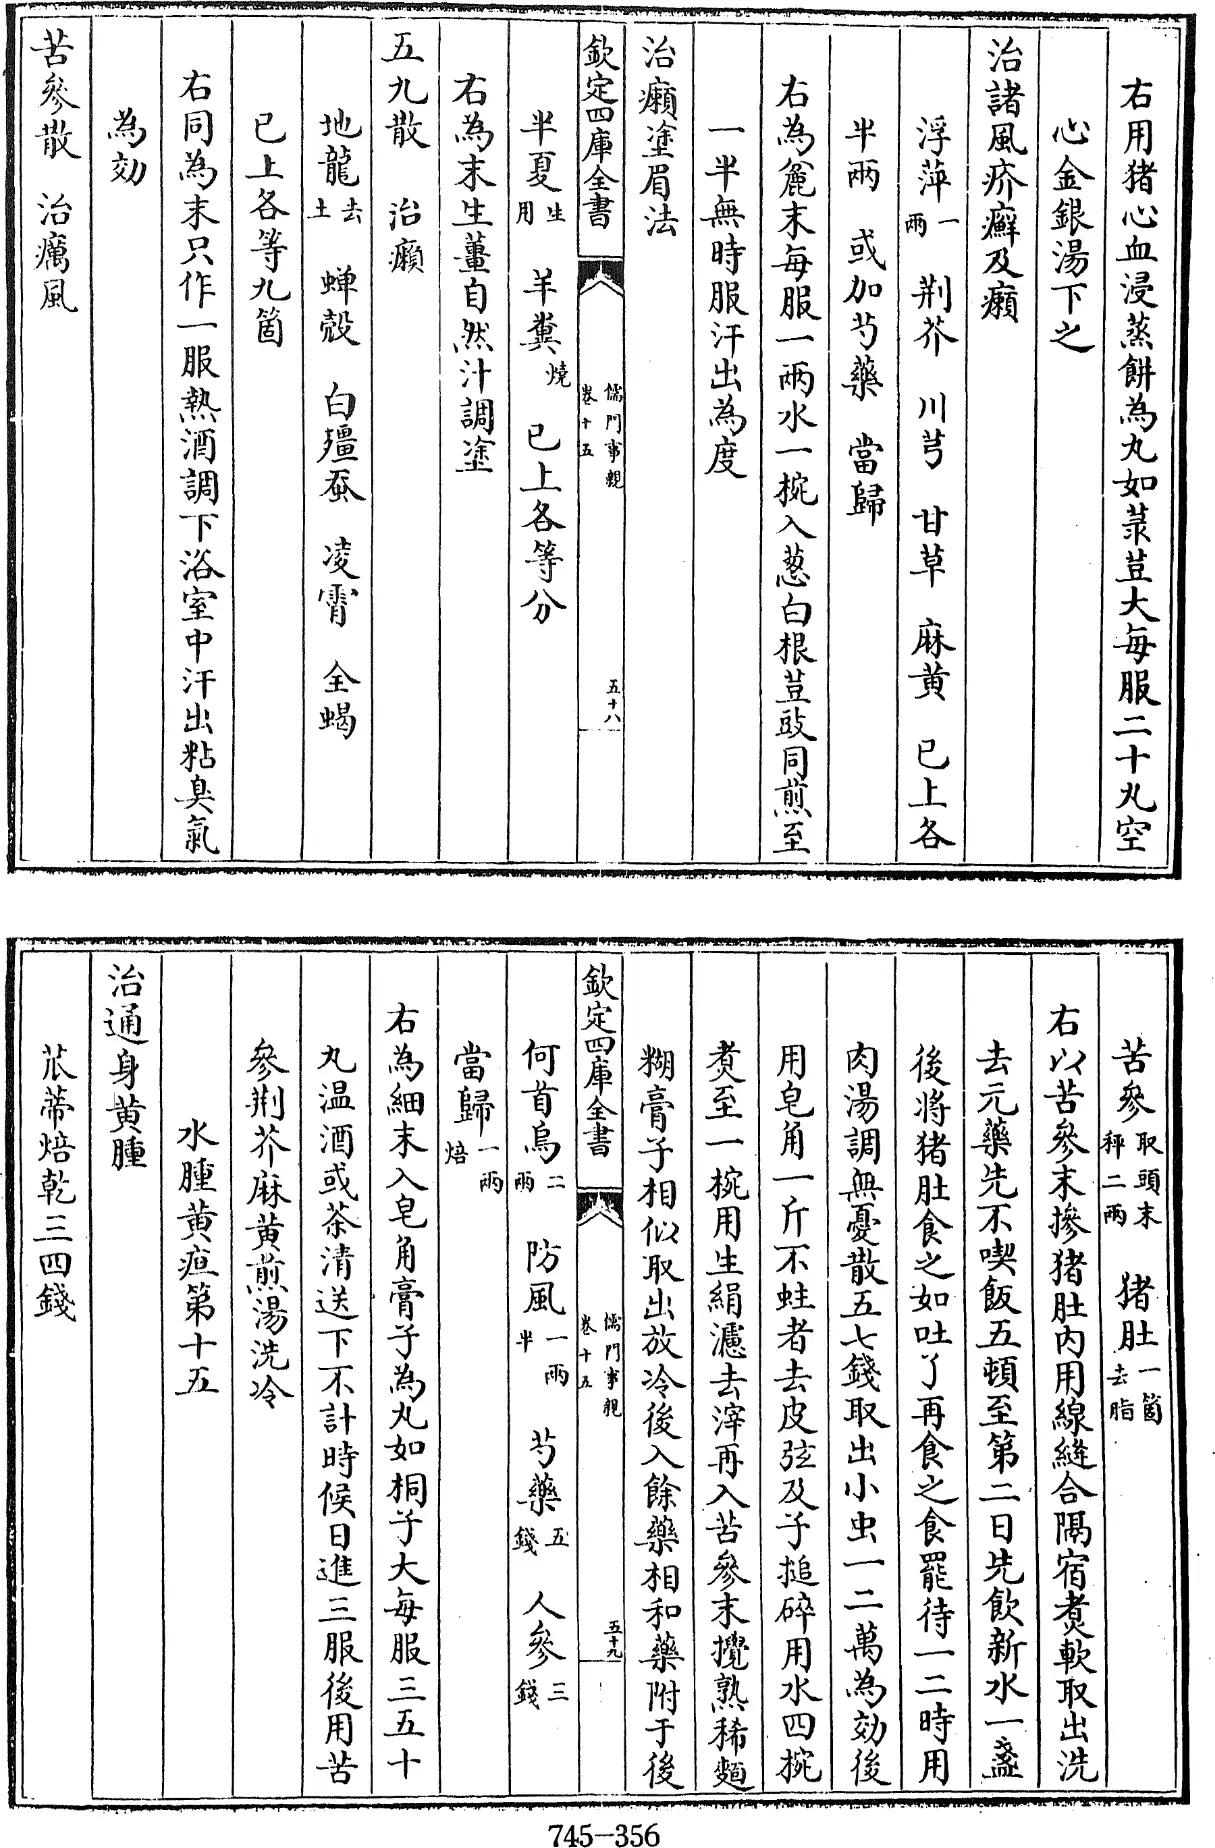 右用猪心血浸蒸餅為丸如菉荳大每服二十丸空
心金銀湯下之
治諸風疥癬及癩
浮萍一兩 荆芥 川芎 甘草 麻黄 已上各
半兩 或加芍藥 當歸
右為麄末每服一兩水一椀入葱白根荳豉同煎至
一半無時服汗出為度
治癩塗眉法
欽定四庫全書
儒門事親
卷十五
五十八
半夏生用 羊糞燒 已上各等分
右為末生薑自然汁調塗
五九散 治癩
地龍去土 蟬殼 白殭蚕 凌霄 全蝎
已上各等九箇
右同為末只作一服熱酒調下浴室中汗出粘臭氣
為効
苦參散 治癘風
苦參取頭末秤二兩 猪肚一箇去脂
右以苦參末摻猪肚内用線縫合隔宿煑軟取出洗
去元藥先不喫飯五頓至第二日先飲新水一盞
後將猪肚食之如吐了再食之食罷待一二時用
肉湯調無憂散五七錢取出小虫一二萬為効後
用皂角一斤不蛀者去皮弦及子搥碎用水四椀
煑至一椀用生絹濾去滓再入苦參末攪熟稀麵
糊膏子相似取出放冷後入餘藥相和藥附于後
欽定四庫全書
儒門事親
卷十五
五十九
何首烏二兩 防風一兩半 芍藥五錢 人參三錢
當歸一兩焙
右為細末入皂角膏子為丸如桐子大每服三五十
丸温酒或茶清送下不計時候日進三服後用苦
參荆芥麻黄煎湯洗冷
水腫黄疸第十五
治通身黄腫
苽蒂焙乾三四錢
745-356